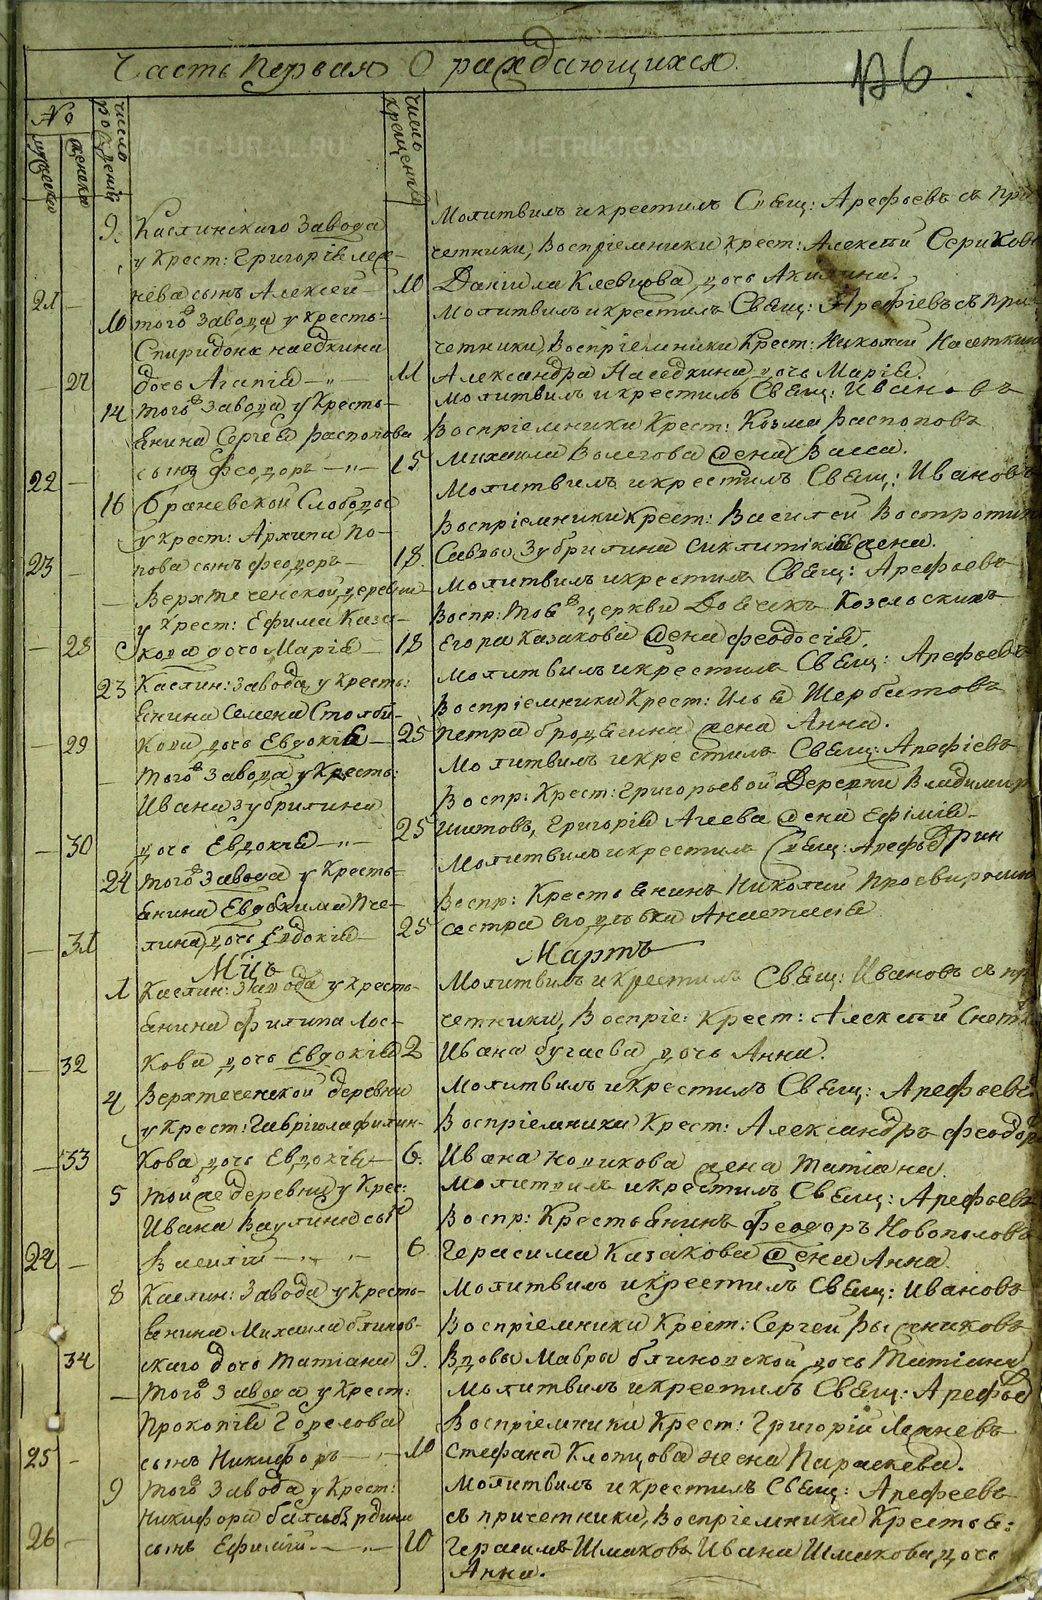 Часть Первая О раждающихся.
176.
№
мужеска
женска
число рожденiй
число крещенiя
9. Каслинскаго Завода
Молитвилъ и крестилъ Свящ: Арефьевъ съ при
у крест: Григорiя Лех-
четники, Воспрiемники крест: Алексѣй Серикова
21 — нева сынъ Алексей — 10 Данiила Клевцова дочь Акилина.
10 того Завода у кресть:
Молитвилъ и крестилъ Свящ: Арефiевъ съ при-
Спиридона наседкина
четники, Воспрiемники Крест: Николай Наседкин
— 27 дочь Агапiя — „ — 11 Александра Наседкина дочь Марiя.
14 того Завода у Кресть-
Молитвилъ и крестилъ Свящ: Ивановъ
янина Сергея Распопова
Воспрiемники Крест: Козма Распоповъ
22 — сынъ Феодоръ — „ — 15 Михаила Волегова жена Васса.
16 Браневской Слободы
Молитвилъ и крестилъ Свящ: Ивановъ
у крест: Архипа По-
Воспрiемники крест: Василей Востротин
23 — пова сынъ феодоръ — 18. Саввы Зубрилина Сиклитикiя жена.
— Верхтеченской деревни
Молитвилъ и крестилъ Свящ: Арефьевъ
у Крест: Ефима Каза-
Воспр: тоя церкви Дьячекъ Козельскихъ
— 28 кова дочь Марiя — 18 Егора Казакова жена феодосiя.
23 Каслин: Завода у кресть:
Молитвилъ и крестилъ Свящ: Арефьевъ
янина Семена Столби-
Воспрiемники Крест: Илья Щербатовъ
— 29 кова дочь Евдокiя — 25 петра бродягина жена Анна.
— того Завода у Кресть:
Молитвилъ и крестилъ Свящ: Арефiевъ
Ивана Зубрилина
Воспр: Крест: Григорьевой Деревни Владимиръ
— 30 дочь Евдокiя — „ — 25 Шитовъ, Григорiя Агеева жена Ефимiя
24 того Завода у Кресть-
Молитвилъ и крестилъ Свящ: Арефье
янина Евдокима Пче-
Воспр: Крестьянинъ Николай Просвирнин
— 31 лина дочь Евдокiя — 25 сестра его девка Анастасiя
М-цъ Мартъ
1 Каслин: Завода у кресть-
Молитвилъ и крестилъ Свящ: Ивановъ съ пр
янина Филипа Лос-
четники, Воспрiе: Крест: Алексѣй Снетк
— 32 кова дочь Евдокiя 2 Ивана бугаева дочь Анна.
4 Верхтеченской деревни
Молитвилъ и крестилъ Свящ: Арефьевъ
у крест: Гаврiила филин-
Воспрiемники Крест: Александръ феодор
— 33 кова дочь Евдокiя — 6. Ивана новикова жена Татiана
5 той же деревни у Крес:
Молитвилъ и крестилъ Свящ: Арефьевъ
Ивана Ваулина сынъ
Воспр: Крестьянинъ Феодоръ Новополовъ
24 — Василiй — „ „ — 6. Герасима Казакова жена Анна.
8 Каслин: Завода у Кресть-
Молитвилъ и крестилъ Свящ: Ивановъ
янина Михаила блинов-
Воспрiемники Крест: Сергей
34 скаго дочь Татiана 9. Вдовы Мавры блиновской дочь Татiана
— того Завода у Крест:
Молитвилъ и крестилъ Свящ: Арефье
Прокопiя Горелова
Воспрiемники Крест: Григорiй Лехневъ
25 — сынъ Никифоръ — 10 Стефана Клопцова жена Параскева.
9 того Завода у Крест:
Молитвилъ и крестилъ Свящ: Арефеевъ
Никифора балабердина
съ причетники, Воспрiемники Кресть:
26 — сынъ Ефимiй — „ — 10 Герасимъ Шмаковъ Ивана Шмакова дочь
Анна.